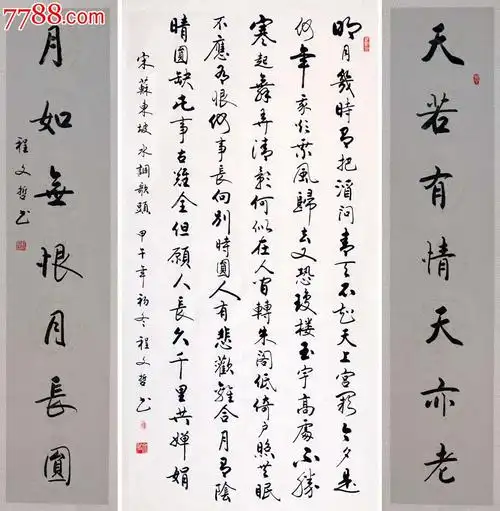 7788.com
天若有情天亦老
明月幾時有把酒问青天不知天上宫阙今夕是
何年我欲乘風歸去又恐瓊樓玉宇高處不勝
寒起舞弄清影何似在人间轉朱阁低倚户照無眠
不應有恨何事長向别時圓人有悲歡離合月有陰
晴圓缺此事古難全但願人長久千里共嬋娟
宋蘇東坡水調歌頭 甲午年初冬 程文哲书
月如無恨月長圓
程文哲书